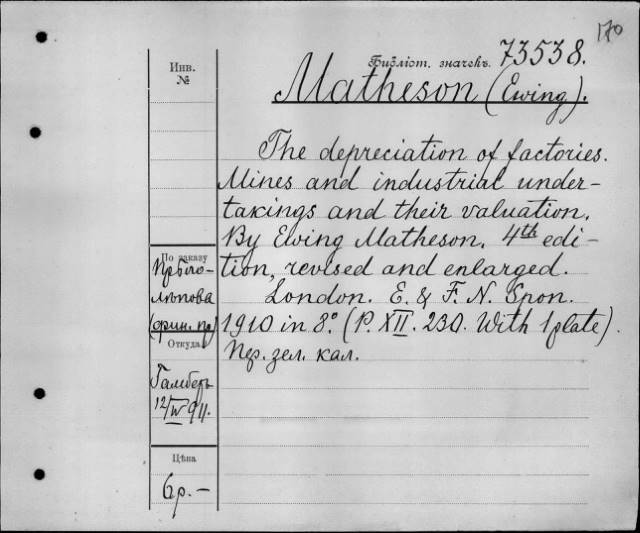 170
Библіот. значекъ 73538.
Инв.
№
Matheson (Ewing).
The depreciation of factories.
Mines and industrial under-
takings and their valuation.
By Ewing Matheson. 4th edi-
tion, revised and enlarged.
London. E. & F. N. Spon.
1910 in 8.° (P. XII. 230. With 1 plate).
Пер. зел. кал.
По заказу
Откуда
12/IV 911.
Цѣна
6р.–